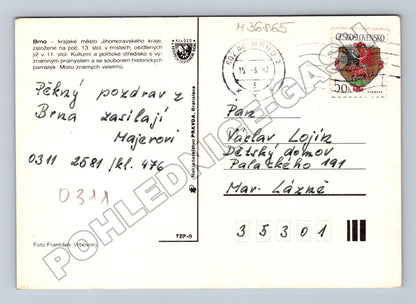 H36865
Brno – krajské město Jihomoravského kraje,
založené na poč. 13. stol. v místech, osídlených
již v 11. stol. Kulturní a politické středisko s vý-
znamným průmyslem a se souborem historických
památek. Místo známých veletrhů
Kčs 0,20
Pěkný pozdrav z
Brna zasílají
Majerovi
0311 2581 /kl. 476
0311
Foto František Vrbovský
Nakladatelství PRAVDA, Bratislava
TZP-11
BRNO 2
ČESKOSLOVENSKO
50h
Pan
Václav Lojín
Dětský domov
Palackého 191
Mar. Lázně
35301
POHLEDNICE-GASH